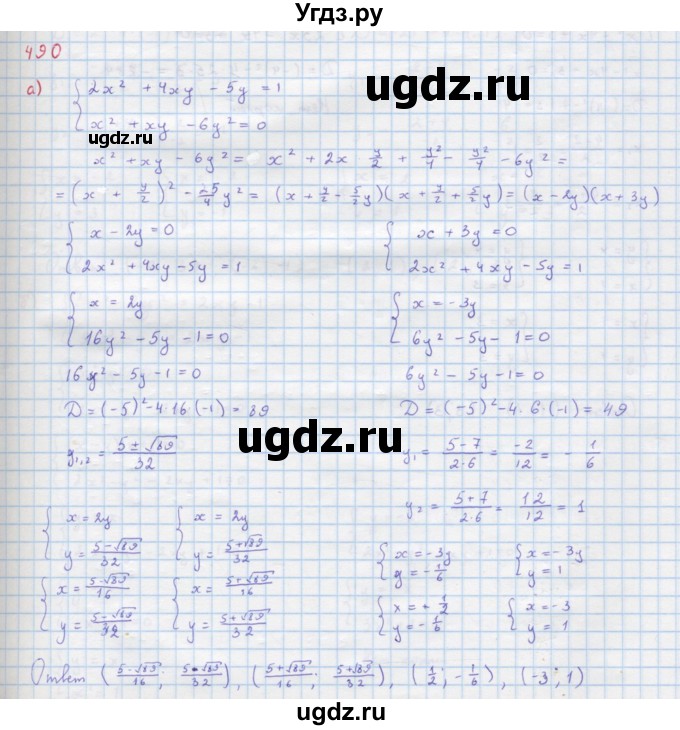 Угдз.ру
490
ugdz.ru
а) { 2x² + 4xy - 5y = 1
x² + xy - 6y² = 0
ugdz.ru
x² + xy - 6y² = x² + 2x · y/2 + y²/4 - y²/4 - 6y² =
= (x + y/2)² - 25/4 y² = (x + y/2 - 5/2 y)(x + y/2 + 5/2 y) = (x - 2y)(x + 3y)
{ x - 2y = 0
2x² + 4xy - 5y = 1
{ x + 3y = 0
2x² + 4xy - 5y = 1
{ x = 2y
16y² - 5y - 1 = 0
{ x = -3y
6y² - 5y - 1 = 0
16y² - 5y - 1 = 0
6y² - 5y - 1 = 0
D = (-5)² - 4·16·(-1) = 89
D = (-5)² - 4·6·(-1) = 49
ugdz.ru
y₁,₂ = (5 ± √89)/32
y₁ = (5 - 7)/(2·6) = -2/12 = - 1/6
y₂ = (5 + 7)/(2·6) = 12/12 = 1
{ x = 2y
y = (5 - √89)/32
{ x = 2y
y = (5 + √89)/32
{ x = -3y
y = -1/6
{ x = -3y
y = 1
{ x = (5 - √89)/16
y = (5 - √89)/32
{ x = (5 + √89)/16
y = (5 + √89)/32
{ x = + 1/2
y = - 1/6
{ x = -3
y = 1
ugdz.ru
Ответ ((5 - √89)/16; (5 - √89)/32), ((5 + √89)/16; (5 + √89)/32), (1/2; -1/6), (-3; 1)
ugdz.ru